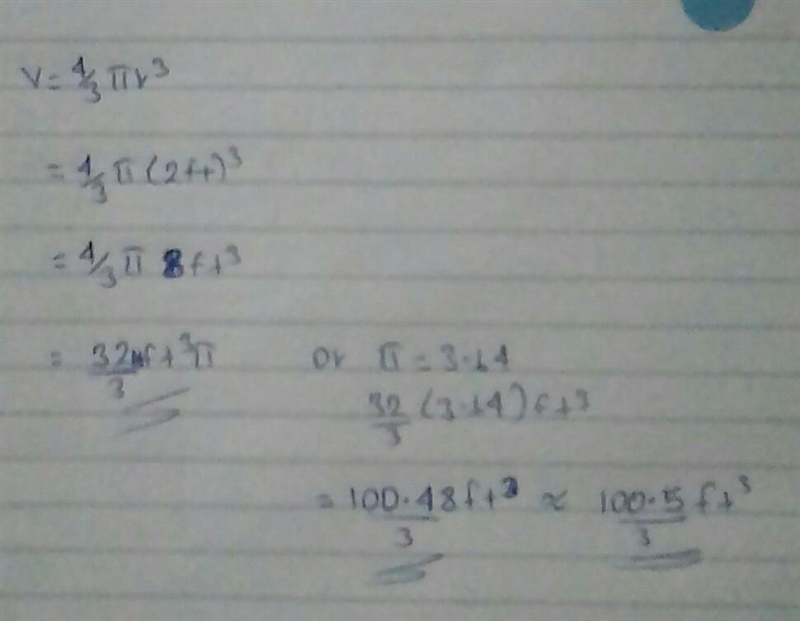 V = 4/3 πr³
= 4/3 π (2ft)³
= 4/3 π 8ft³
= 32/3 ft³π or π = 3.14
32/3 (3.14) ft³
= 100.48/3 ft³ ≈ 100.5/3 ft³